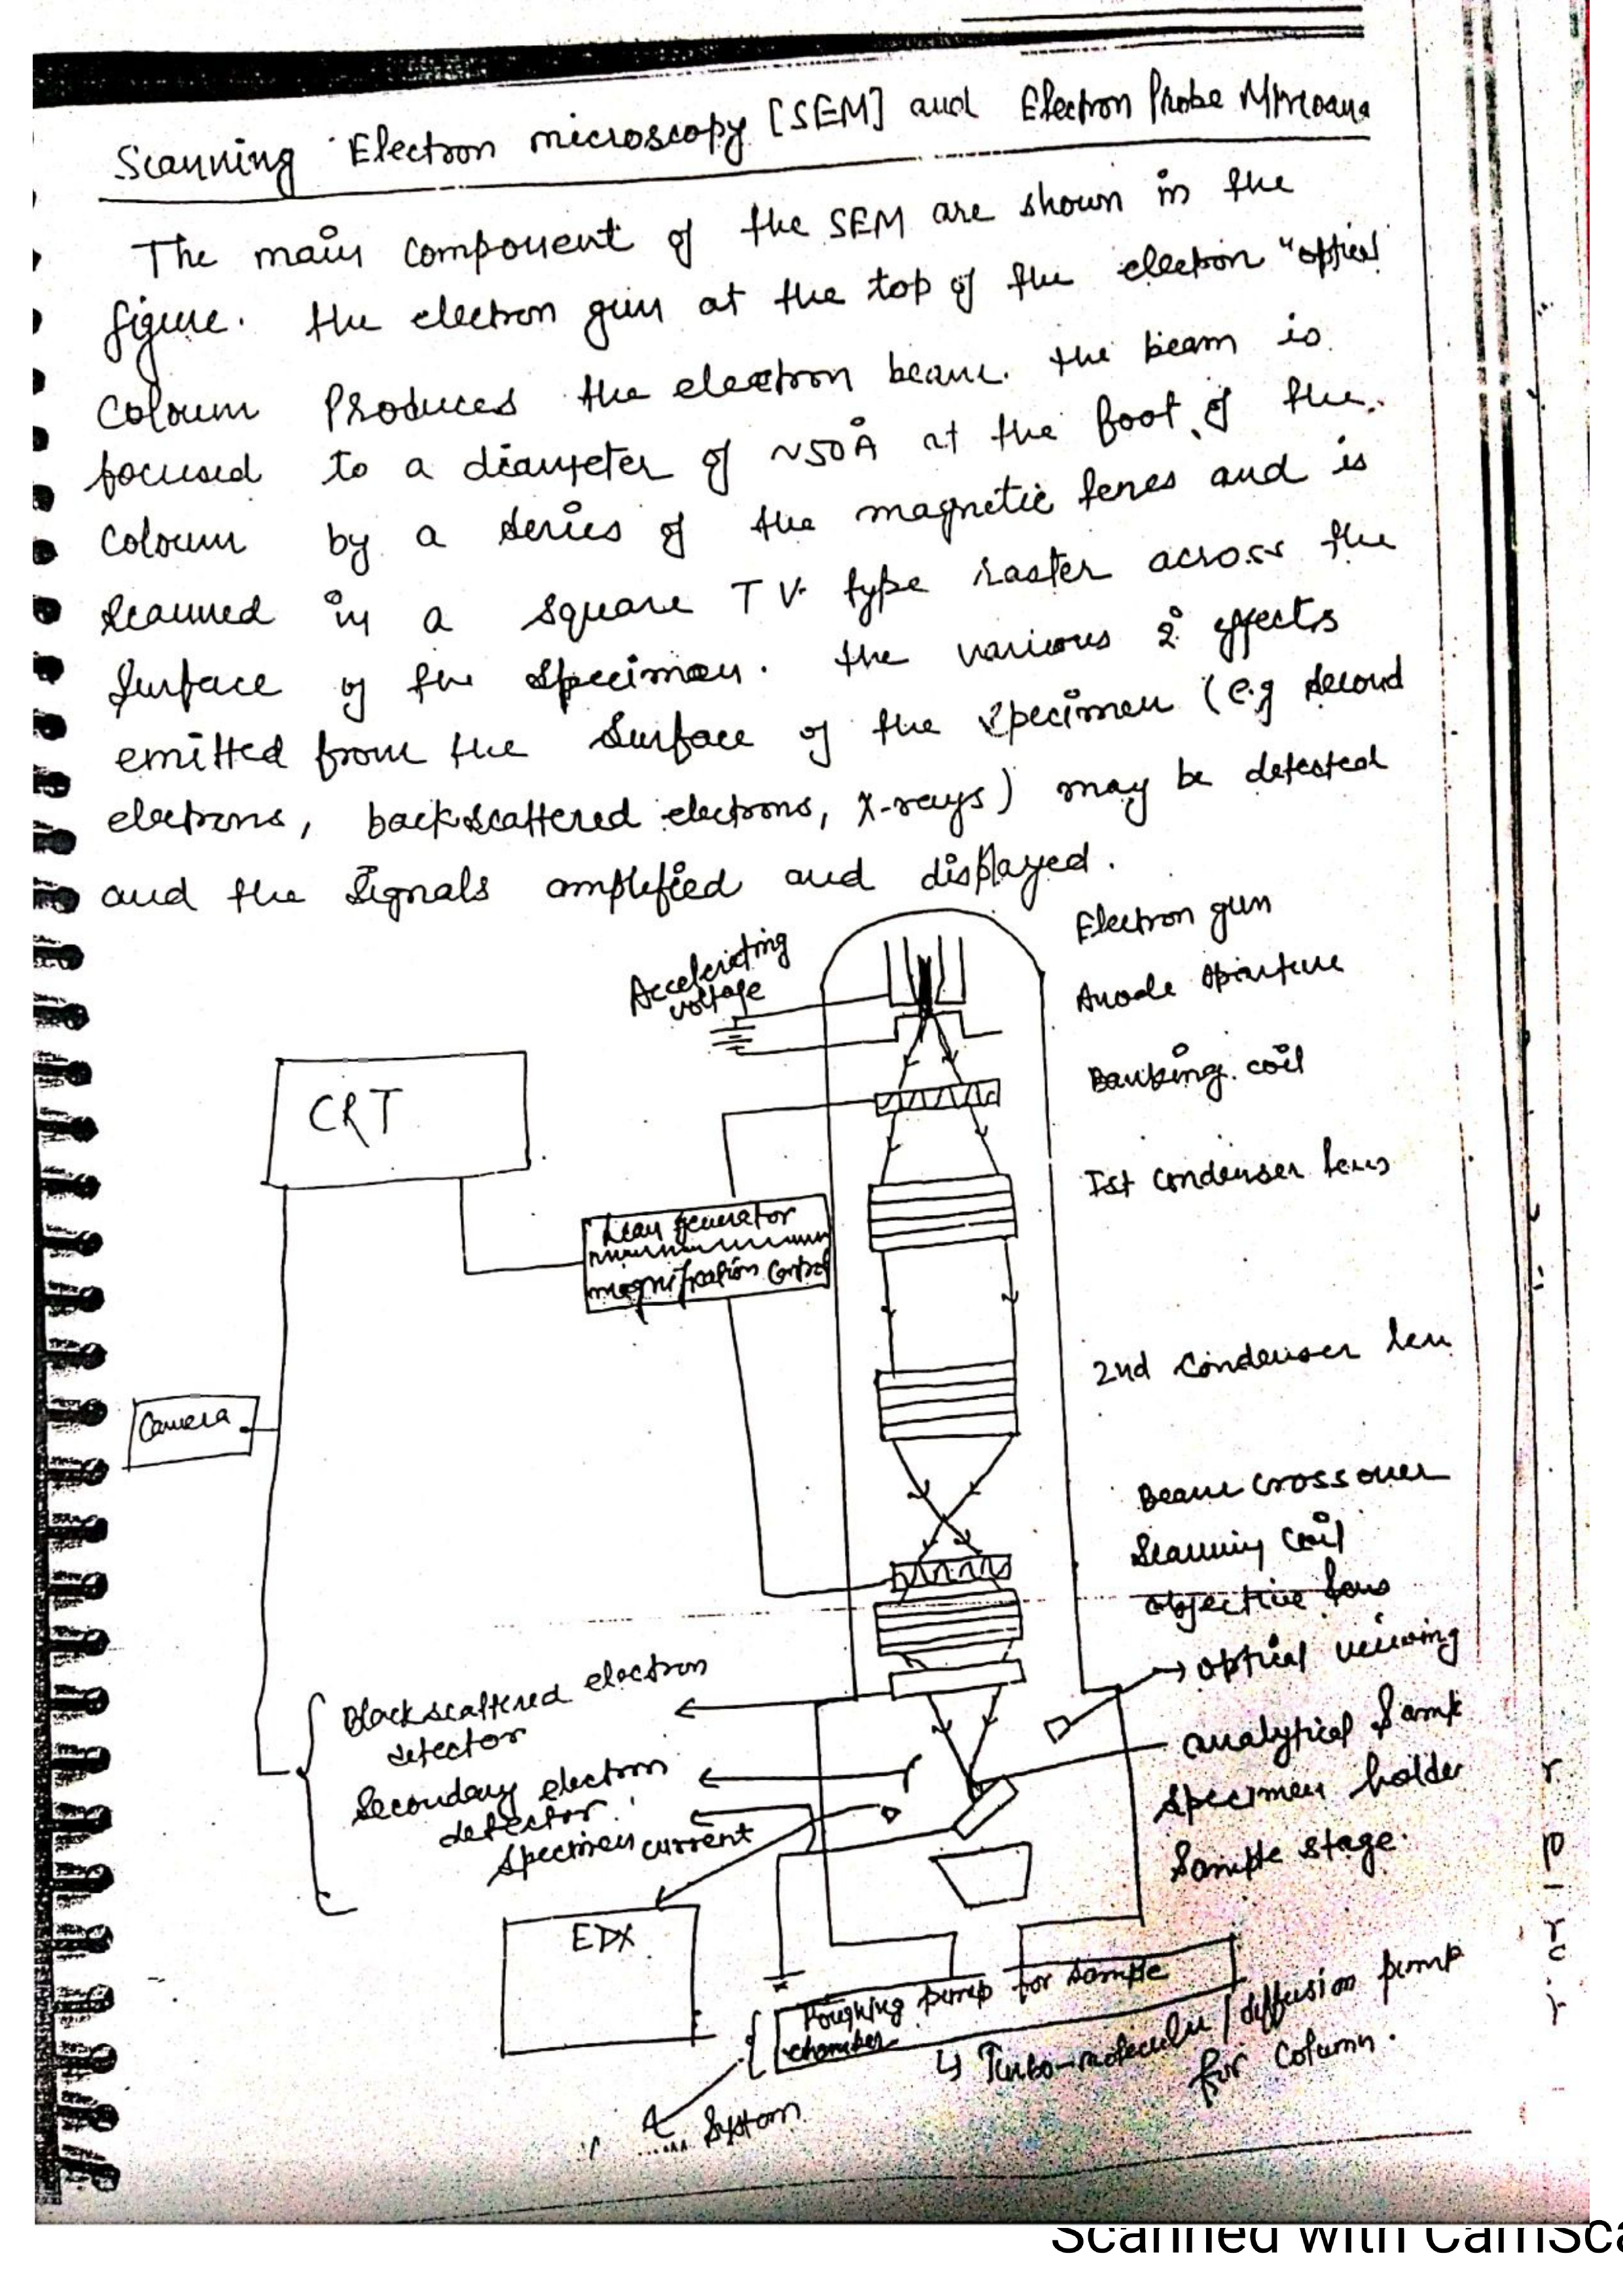 Scanning Electron microscopy [SEM] and Electron Probe Microana
The main component of the SEM are shown in the
figure. the electron gun at the top of the electron "optical
Coloum Produces the electron beam. the beam is
focused to a diameter of ~50Å at the foot of the
Coloum by a series of the magnetic lenes and is
Scanned in a square TV type raster across the
Surface of the Specimen. the various 2° effects
emitted from the Surface of the specimen (e.g second
electrons, backscattered electrons, X-rays) may be detected
and the Signals amplified and displayed.
Electron gun
Accelerating
voltage
Anode Aparture
coil
CRT
Ist Condenser lens
Scan generator
magnification Control
2nd Condenser len
Camera
Beam crossover
Scanning Coil
objective lens
optical veiwing
Backscattered electron
detector
analytical Samp
Secondary electron
detector
Specimen holder
Specimen current
Sample stage.
EDX
Roughing pump for sample
chamber
↳ Turbo-molecular / diffusion pump
for Column.
System
Scanned with CamSca